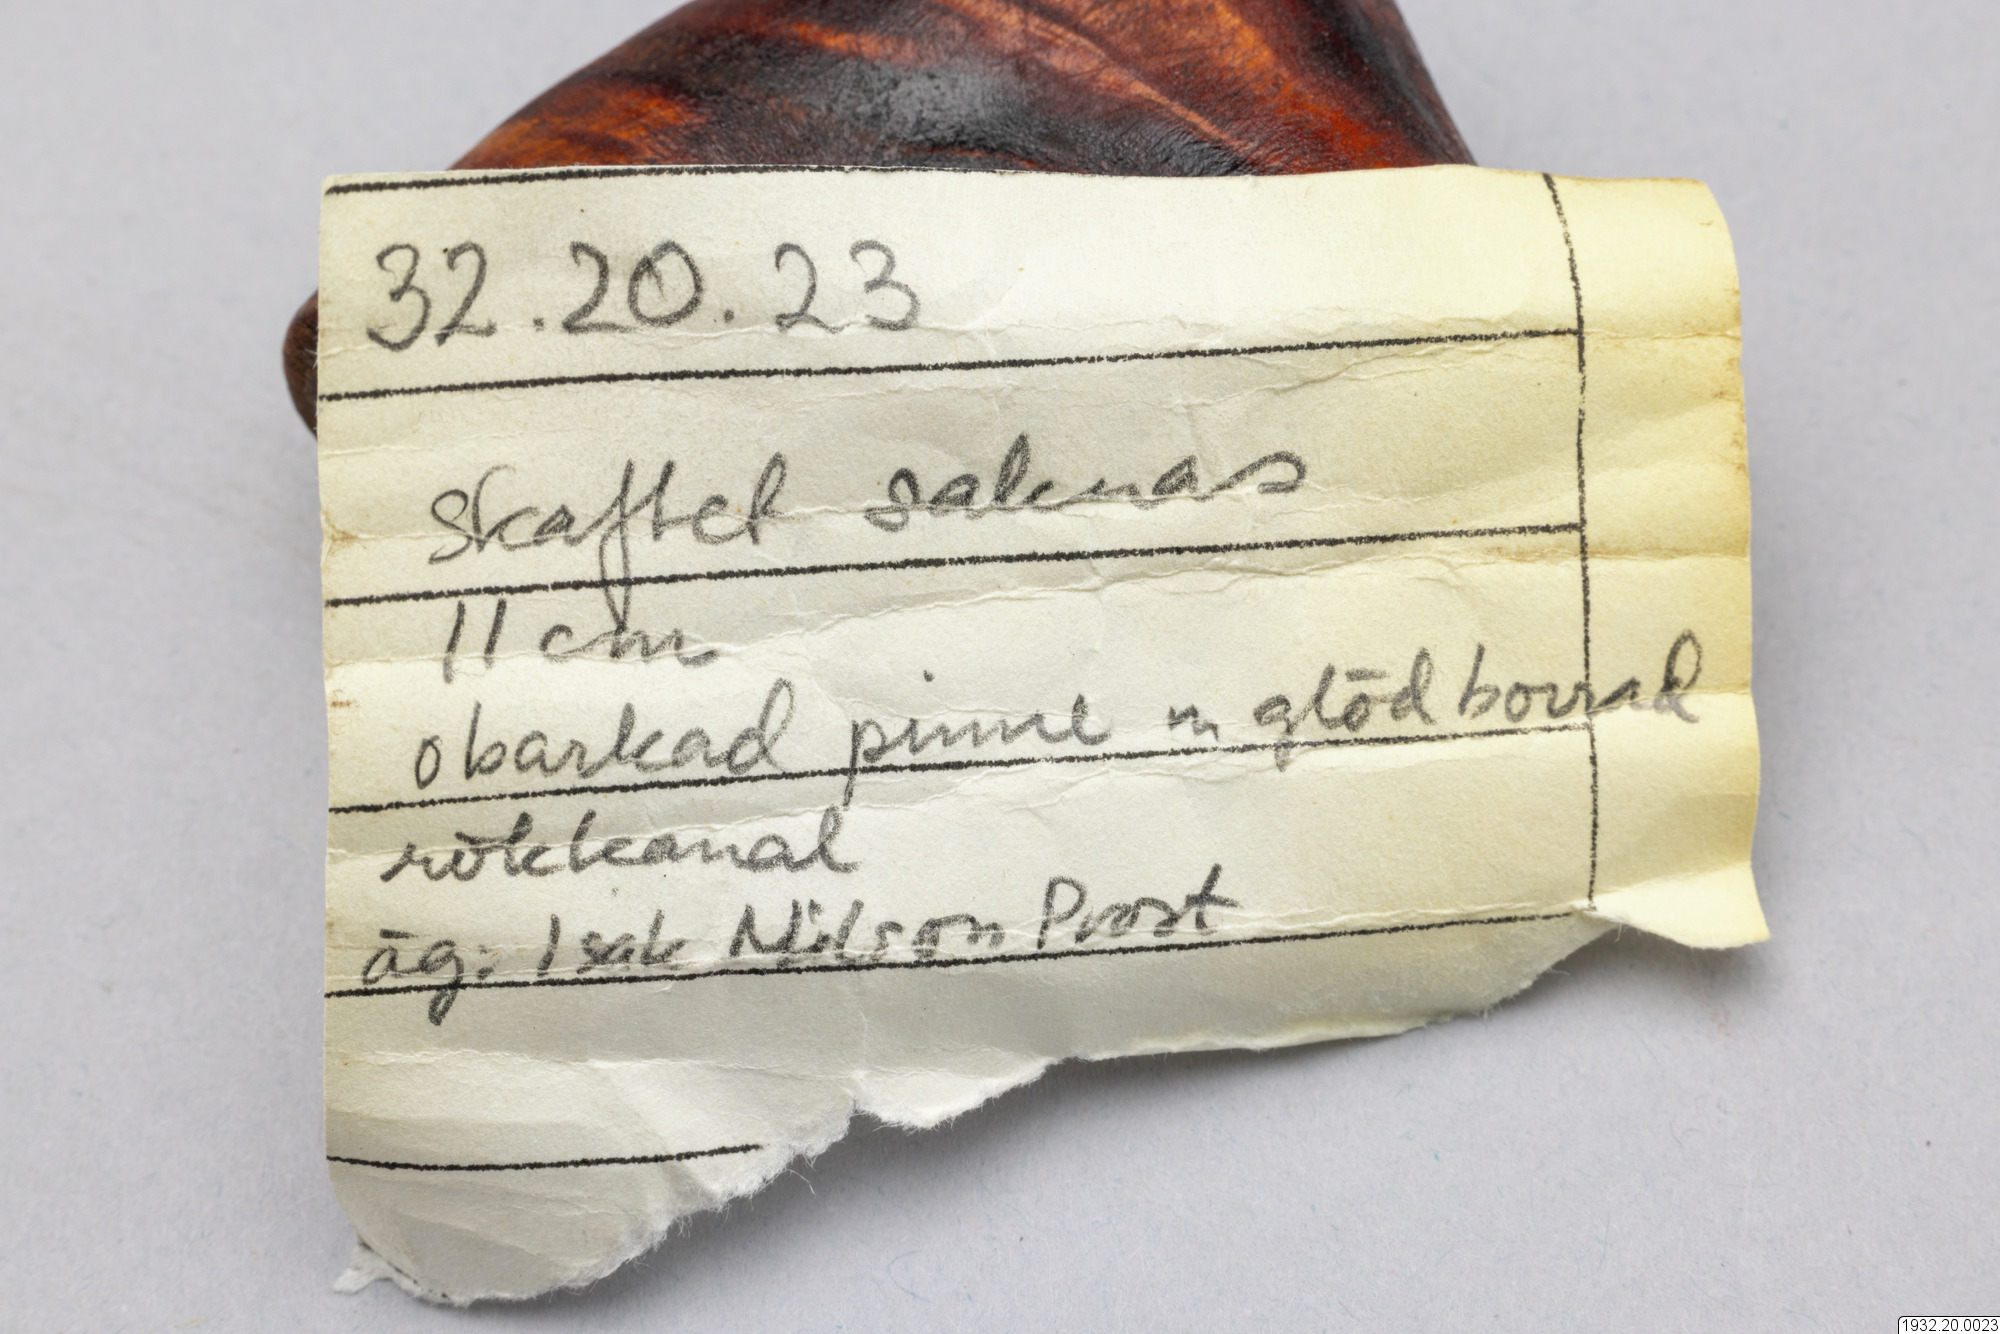 32.20.23
skaftet saknas
11 cm
obarkad pinne m glödborrad
rökkanal
äg: Isak Nilsson Prost
1932.20.0023